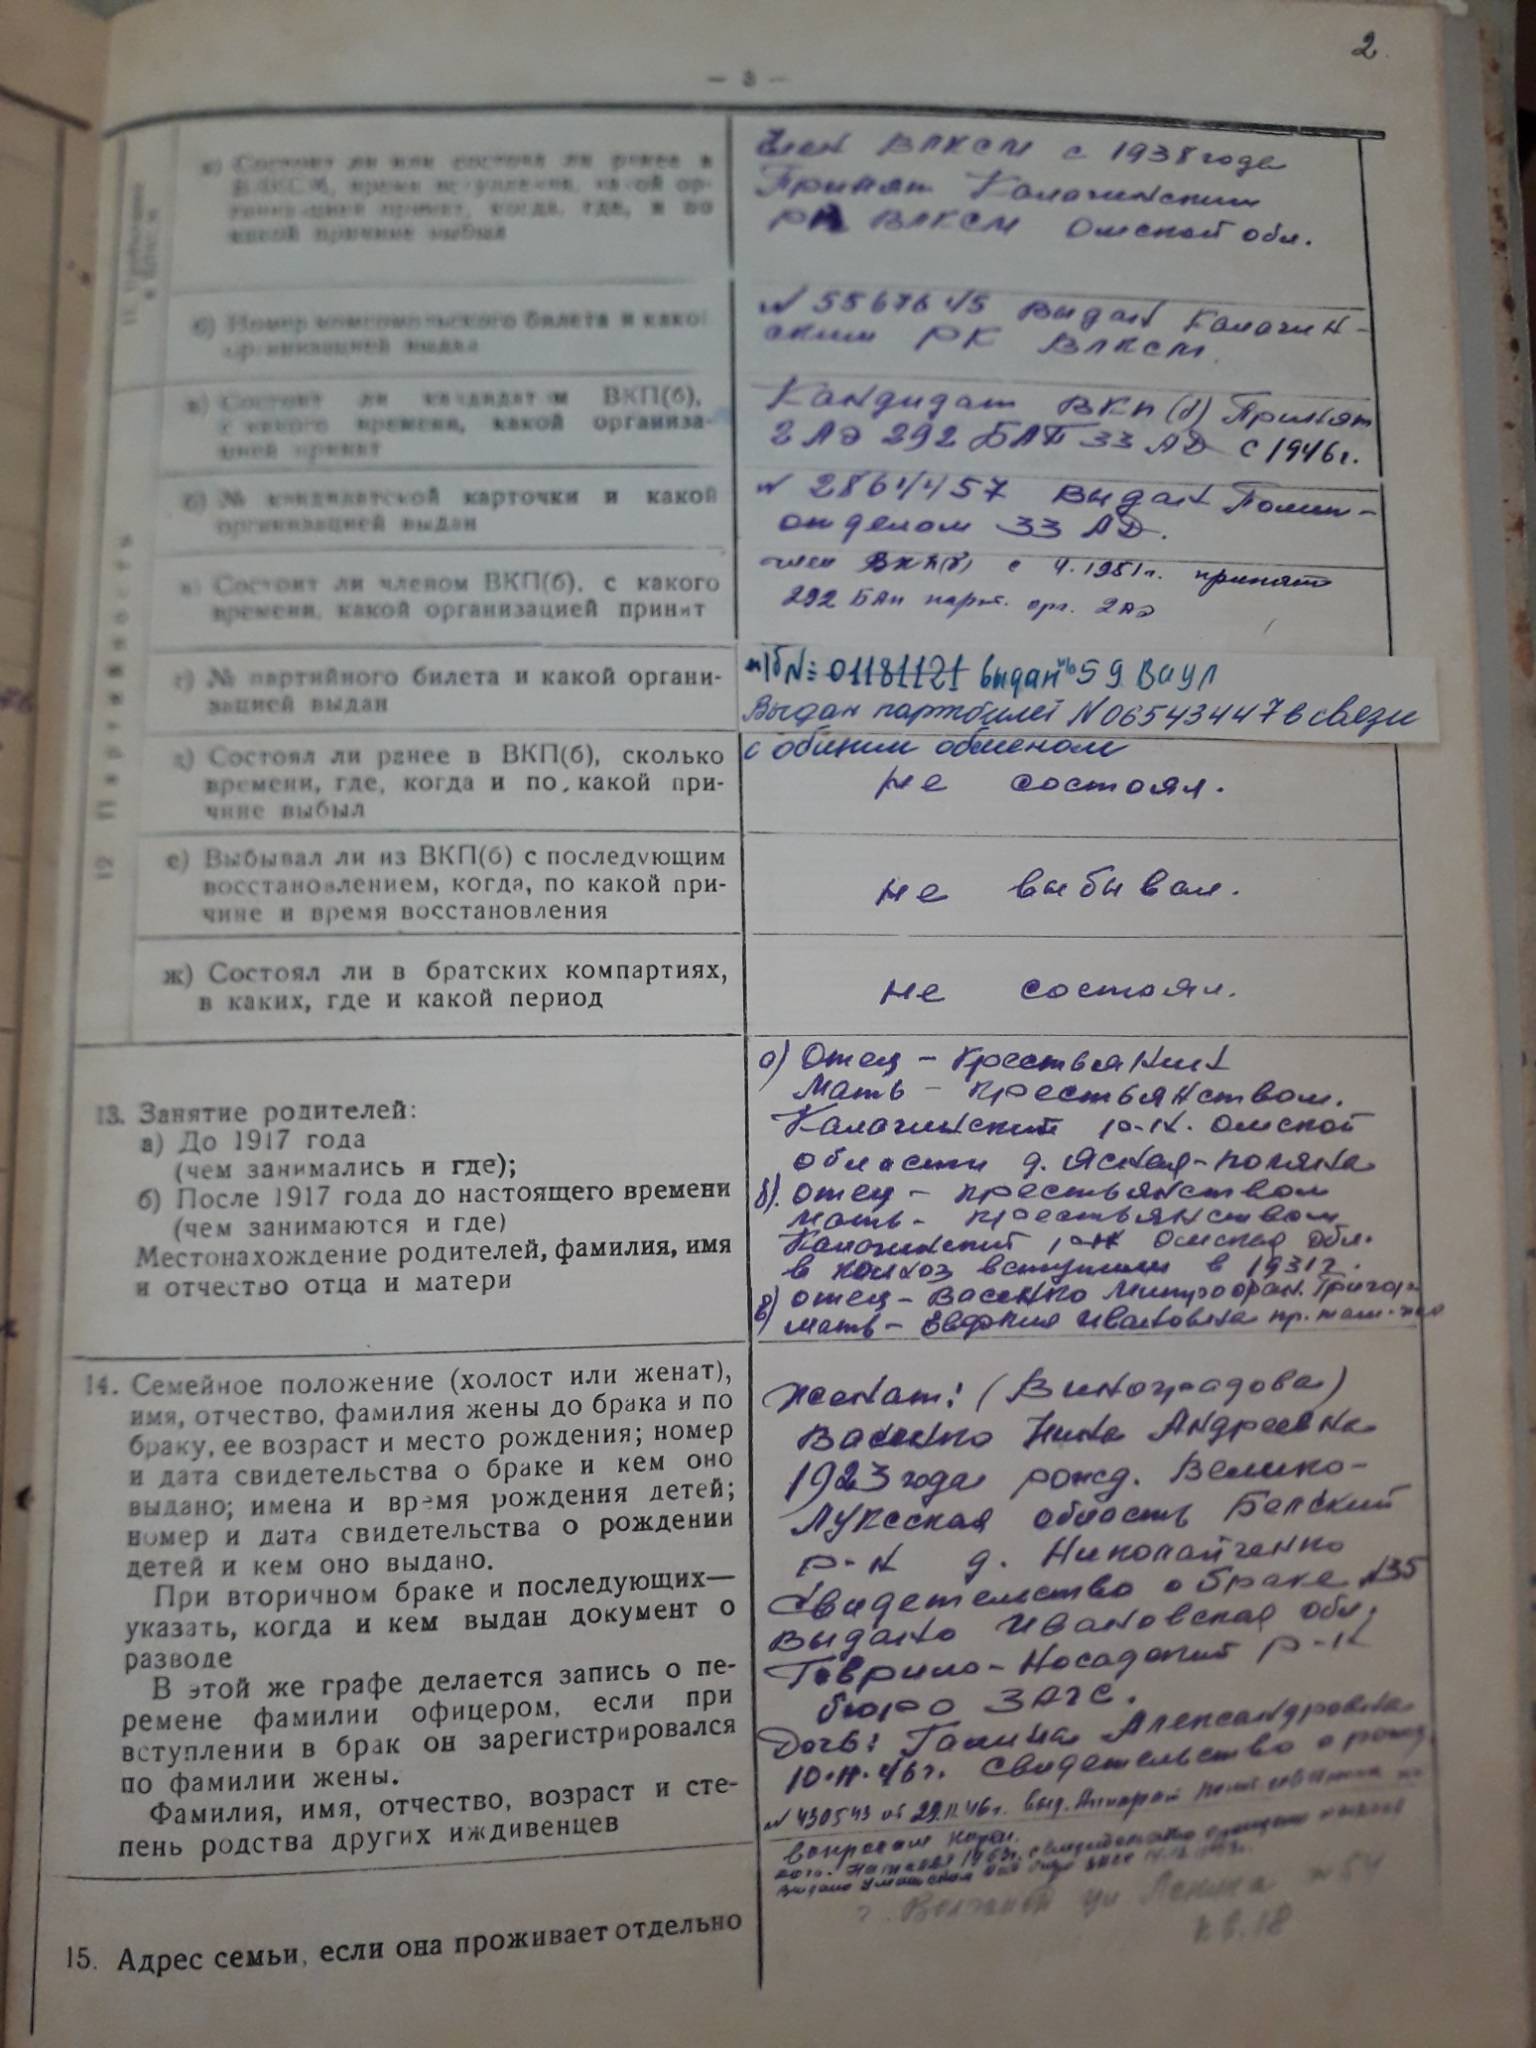 2
— 3 —
11. Пребывание
в ВЛКСМ
а) Состоит ли или состоял ли ранее в
ВЛКСМ, время вступления, какой ор-
ганизацией принят, когда, где, и по
какой причине выбыл
Член ВЛКСМ с 1938 года
Принят Калачинским
РК ВЛКСМ Омской обл.
б) Номер комсомольского билета и какой
организацией выдан
№ 5567645 Выдан Калачин-
ским РК ВЛКСМ.
12 Партийность
а) Состоит ли кандидатом ВКП(б),
с какого времени, какой организа-
цией принят
Кандидат ВКП(б) Принят
2 АЭ 292 БАП 33 АД с 1946г.
б) № кандидатской карточки и какой
организацией выдан
№ 2864457 Выдан Полит-
отделом 33 АД.
в) Состоит ли членом ВКП(б), с какого
времени, какой организацией принят
член ВКП(б) с 4.1951г. принят
292 БАП парт. орг. 2АЭ
г) № партийного билета и какой органи-
зацией выдан
п/б №: 01181121 выдан 59 ВАУЛ
Выдан партбилет №06543447 в связи
с общим обменом
д) Состоял ли ранее в ВКП(б), сколько
времени, где, когда и по какой при-
чине выбыл
не состоял.
е) Выбывал ли из ВКП(б) с последующим
восстановлением, когда, по какой при-
чине и время восстановления
не выбывал.
ж) Состоял ли в братских компартиях,
в каких, где и какой период
не состоял.
13. Занятие родителей:
а) До 1917 года
(чем занимались и где);
б) После 1917 года до настоящего времени
(чем занимаются и где)
Местонахождение родителей, фамилия, имя
и отчество отца и матери
а) Отец – крестьянин
Мать – крестьянством.
Калачинский р-н. Омской
области д. Ясная-поляна
б). отец – крестьянством
мать – крестьянством
Калачинский р-н Омская обл.
в колхоз вступили в 1931г.
в) отец – Васенко Митрофан. Григор.
мать – Евгения Ивановна пр. там-же
14. Семейное положение (холост или женат),
имя, отчество, фамилия жены до брака и по
браку, ее возраст и место рождения; номер
и дата свидетельства о браке и кем оно
выдано; имена и время рождения детей;
номер и дата свидетельства о рождении
детей и кем оно выдано.
При вторичном браке и последующих—
указать, когда и кем выдан документ о
разводе
В этой же графе делается запись о пе-
ремене фамилии офицером, если при
вступлении в брак он зарегистрировался
по фамилии жены.
Фамилия, имя, отчество, возраст и сте-
пень родства других иждивенцев
женат: (Виноградова)
Васенко Нина Андреевна
1923 года рожд. Велико-
Лукская область Бельский
р-н д. Николайченко
Свидетельство о браке №35
Выдано Ивановская обл.
Гаврило-Посадский р-н
бюро ЗАГС.
Дочь: Галина Александровна
10.11.46г. Свидетельство о рожд.
№ 430543 от 29.11.46г. выд.
вопросам
1963г. свидетельство
Выдано
г. Волчанск ул Ленина № 54
кв. 18
15. Адрес семьи, если она проживает отдельно